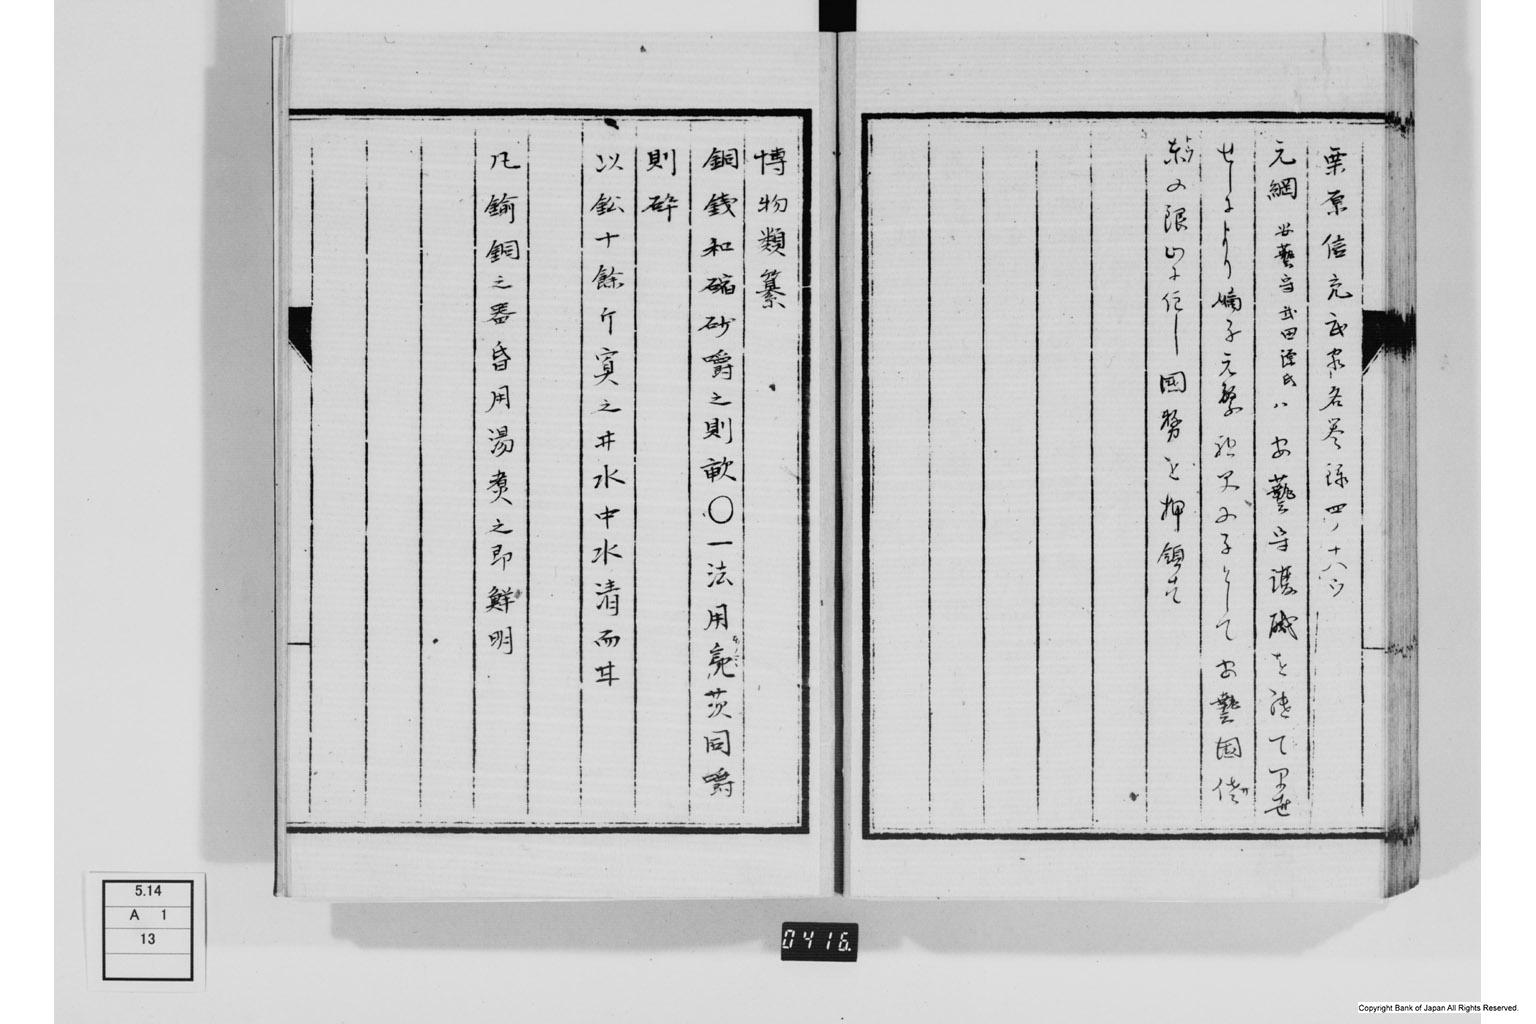 栗原信充武家名墨録四ノ十八ウ
元綱 安藝守武田源氏ハ 安藝守護職を譲て早世
せしにより嫡子元繁祖父の子として安藝國佐
東の銀山に住し國務を押領す
博物類纂
銅錢和碯砂嚼之則軟〇一法用鳬茨同嚼
則碎
以鉛十餘斤寘之井水中水清而甘
凡鍮銅之器昏用湯煑之即鮮明
5.14
A 1
13
0416
Copyright Bank of Japan All Rights Reserved.